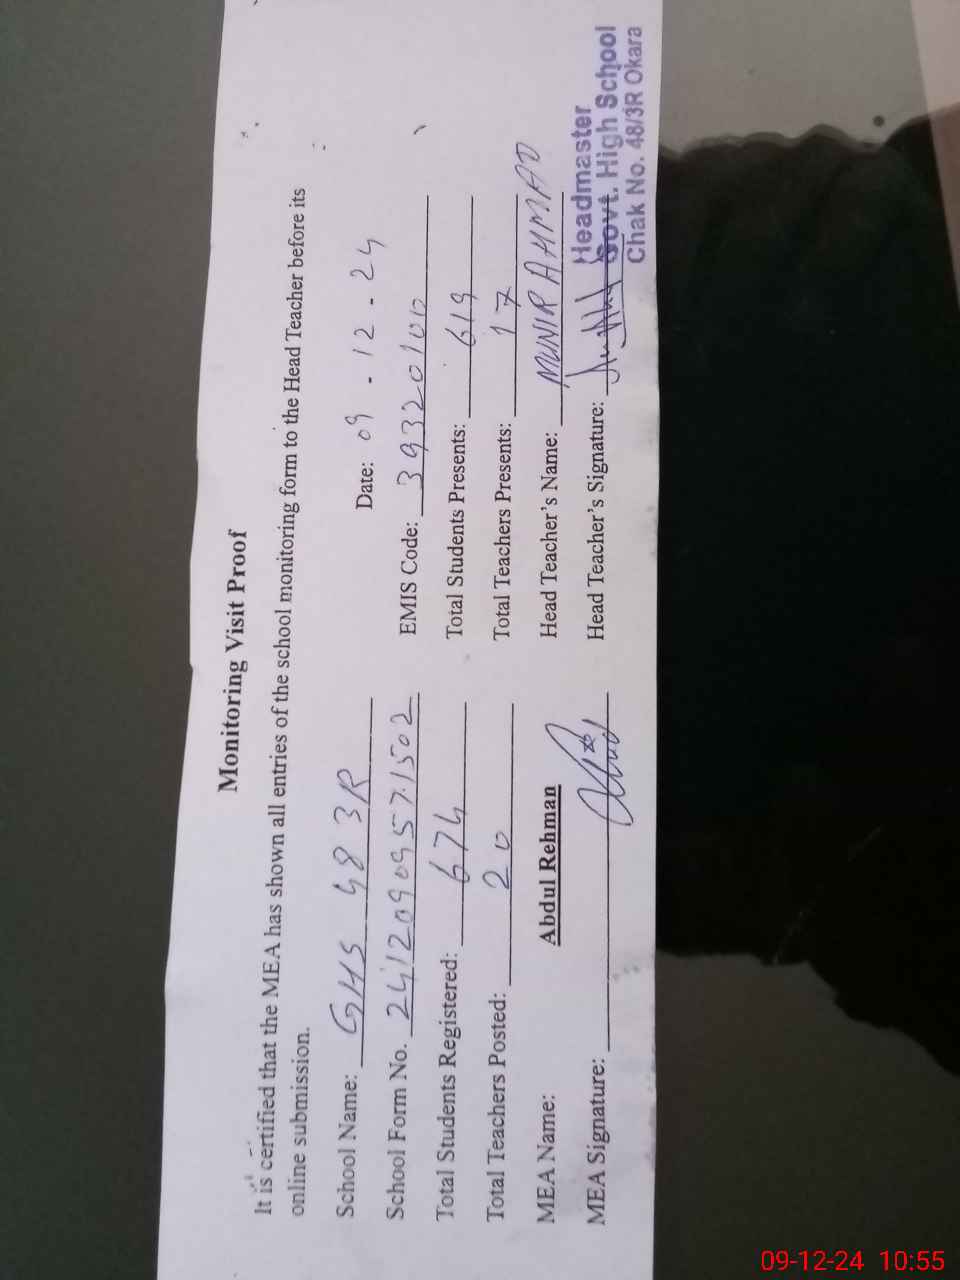 Monitoring Visit Proof
It is certified that the MEA has shown all entries of the school monitoring form to the Head Teacher before its
online submission.
School Name: GHS 48 3R Date: 09 - 12 - 24
School Form No. 24120909571502 EMIS Code: 39320100
Total Students Registered: 674 Total Students Presents: 619
Total Teachers Posted: 20 Total Teachers Presents: 17
MEA Name: Abdul Rehman Head Teacher's Name: MUNIR AHMAD
MEA Signature: Head Teacher's Signature:
Headmaster
Govt. High School
Chak No. 48/3R Okara
09-12-24 10:55